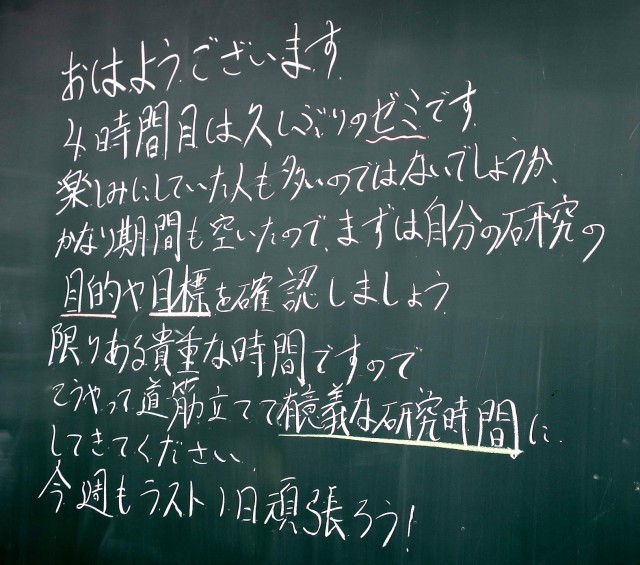 おはようございます
4時間目は久しぶりのゼミです.
楽しみにしていた人も多いのではないでしょうか、
かなり期間も空いたので、まずは自分の研究の
目的や目標を確認しましょう
限りある貴重な時間ですので
こうやって道筋立てて有意義な研究時間に
してきてください.
今週もラスト1日頑張ろう!